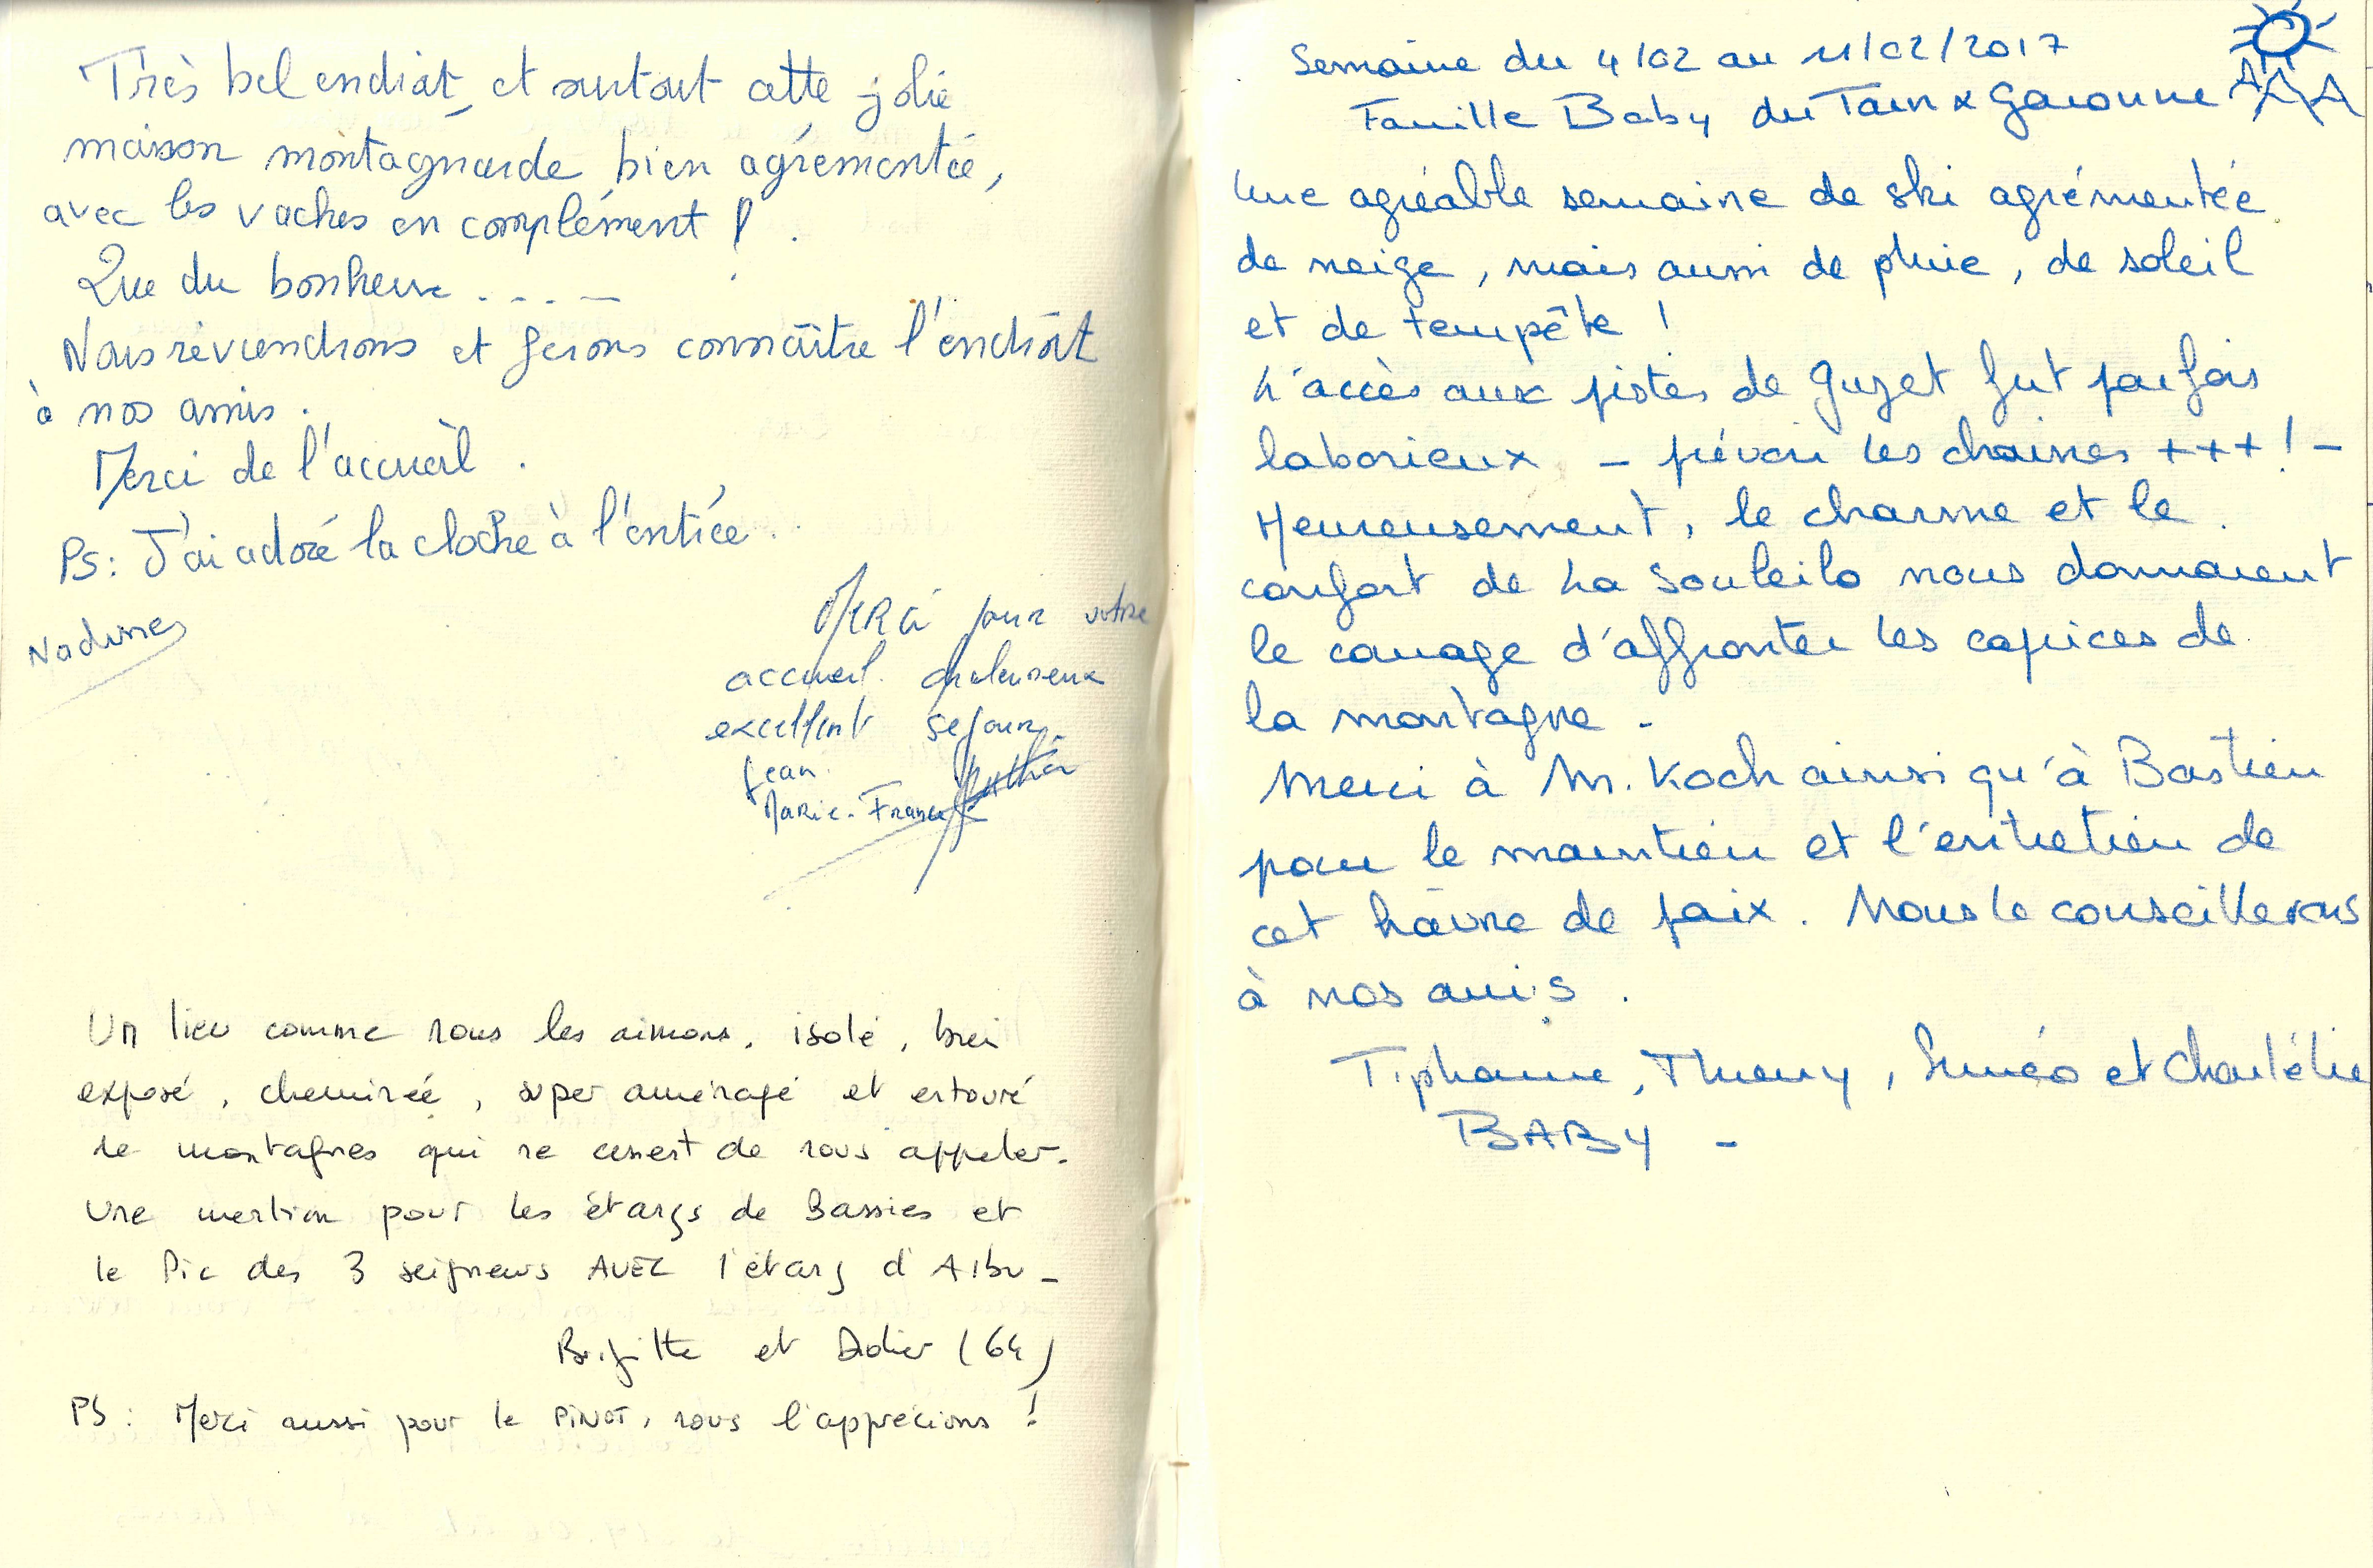 Très bel endroit, et surtout cette jolie
maison montagnarde bien agrémentée,
avec les vaches en complément !
Que du bonheur . . . . —
Nous reviendrons et ferons connaître l'endroit
à nos amis.
Merci de l'accueil.
PS: J'ai adoré la cloche à l'entrée.
Nadine
MERCi pour votre
accueil chaleureux
excellent sejour
Jean
Marie-France
Un lieu comme nous les aimons, isolé, bien
exposé, cheminée, super aménagé et entouré
de montagnes qui ne cessent de nous appeler.
Une mention pour les étangs de Bassies et
le Pic des 3 seigneurs AVEC l'étang d'Aibu -
Brigitte et Didier (64)
PS : Merci aussi pour le PINOT, nous l'apprécions !
Semaine du 4/02 au 11/02/2017
Famille Baby du Tarn x Garonne
Une agréable semaine de ski agrémentée
de neige, mais aussi de pluie, de soleil
et de tempête !
L'accès aux pistes de Guzet fut parfois
laborieux - prévoir les chaines +++ ! -
Heureusement, le charme et le
confort de La Souleilo nous donnaient
le courage d'affronter les caprices de
la montagne -
Merci à M. Koch ainsi qu'à Bastien
pour le maintien et l'entretien de
cet hâvre de paix. Nous le conseillerons
à nos amis.
Tiphanie, Thierry, Siméo et Charlélie
BABY -